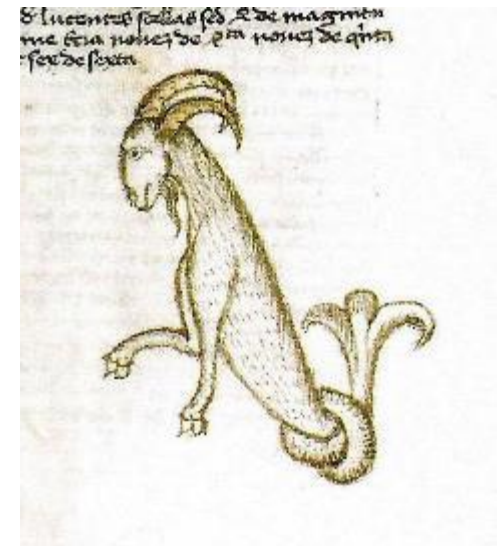 lucentes stellas sed de magnitu
ne t͛cia noueʒ de q͛ta noueʒ de qͥnta
sex de sexta